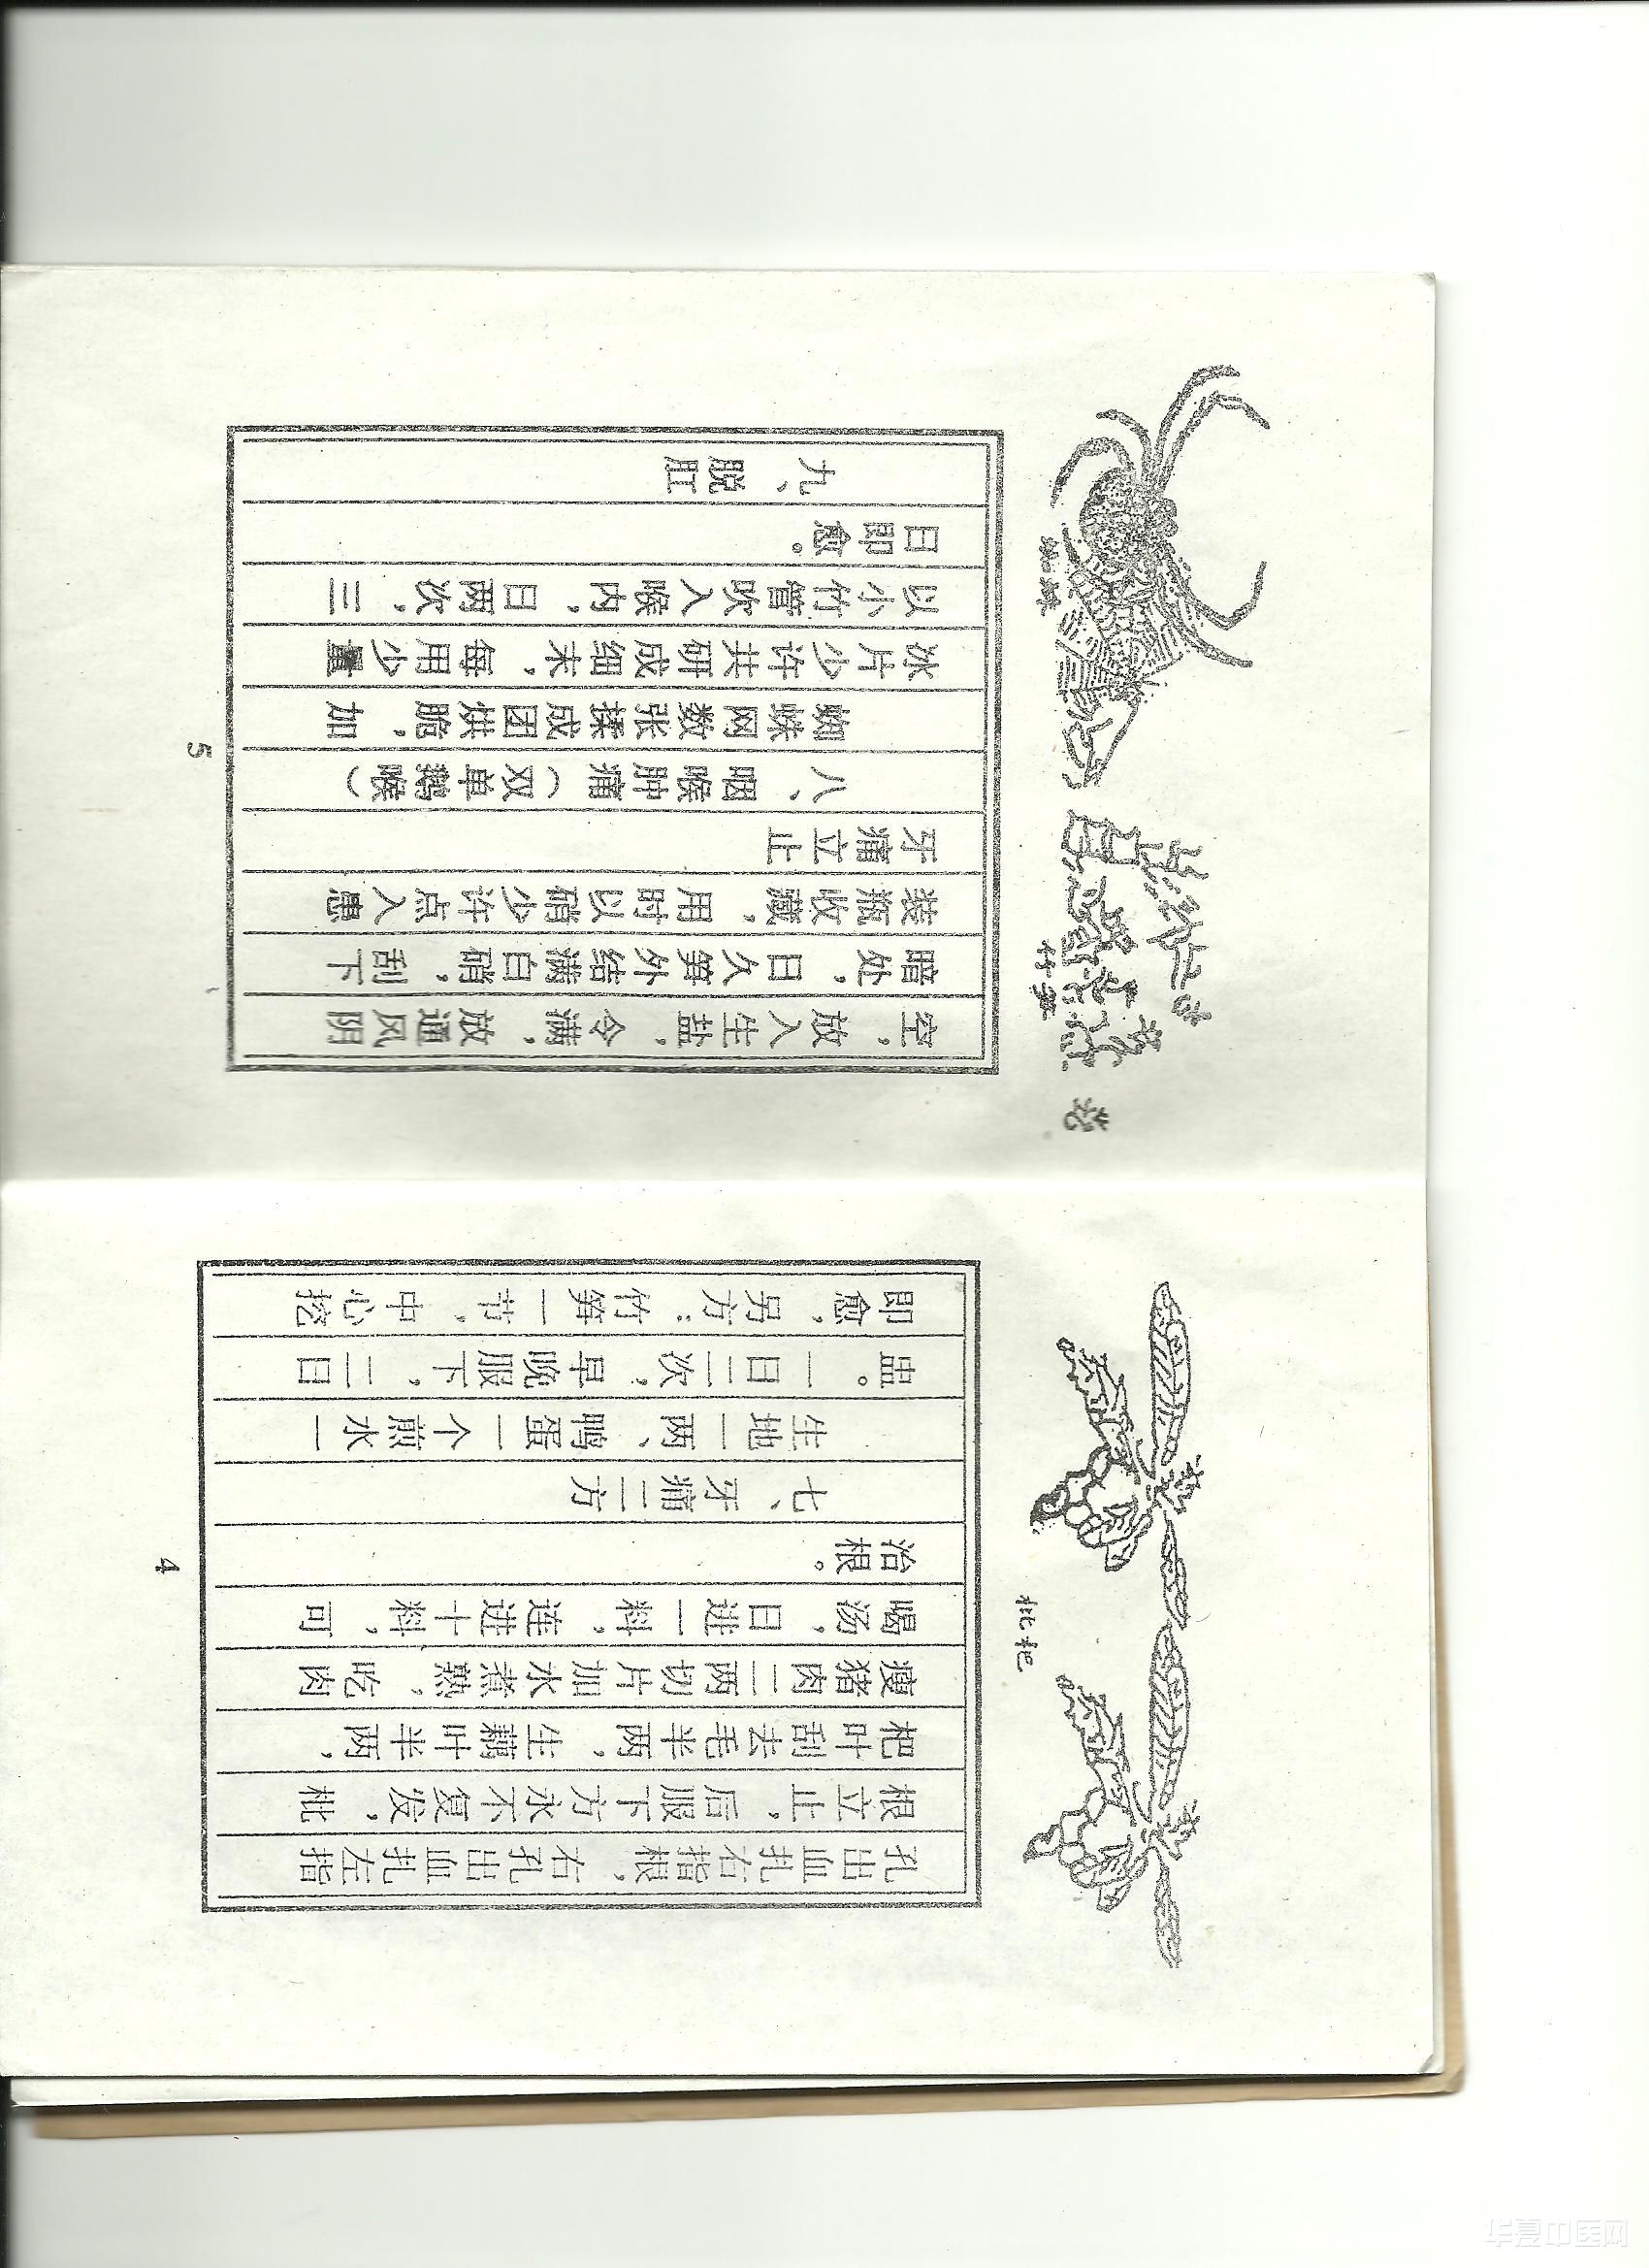 枇杷
孔出血扎右指根，右孔出血扎左指
根立止，后服下方永不复发，枇
杷叶刮去毛半两，生藕叶半两，
瘦猪肉二两切片加水煮熟，吃肉
喝汤，日进一料，连进十料，可
治根。
七、牙痛二方
生地一两、鸭蛋一个煎水一
盅。一日二次，早晚服下，二日
即愈，另方：竹笋一节，中心挖
4
竹笋
蜘蛛
空，放入生盐，令满，放通风阴
暗处，日久笋外结满白硝，刮下
装瓶收藏，用时以硝少许点入患
牙痛立止
八、咽喉肿痛（双单鹅喉）
蜘蛛网数张揉成团烘脆，加
冰片少许共研成细末，每用少量
以小竹管吹入喉内，日两次，三
日即愈。
九、脱肛
5
华夏中医网